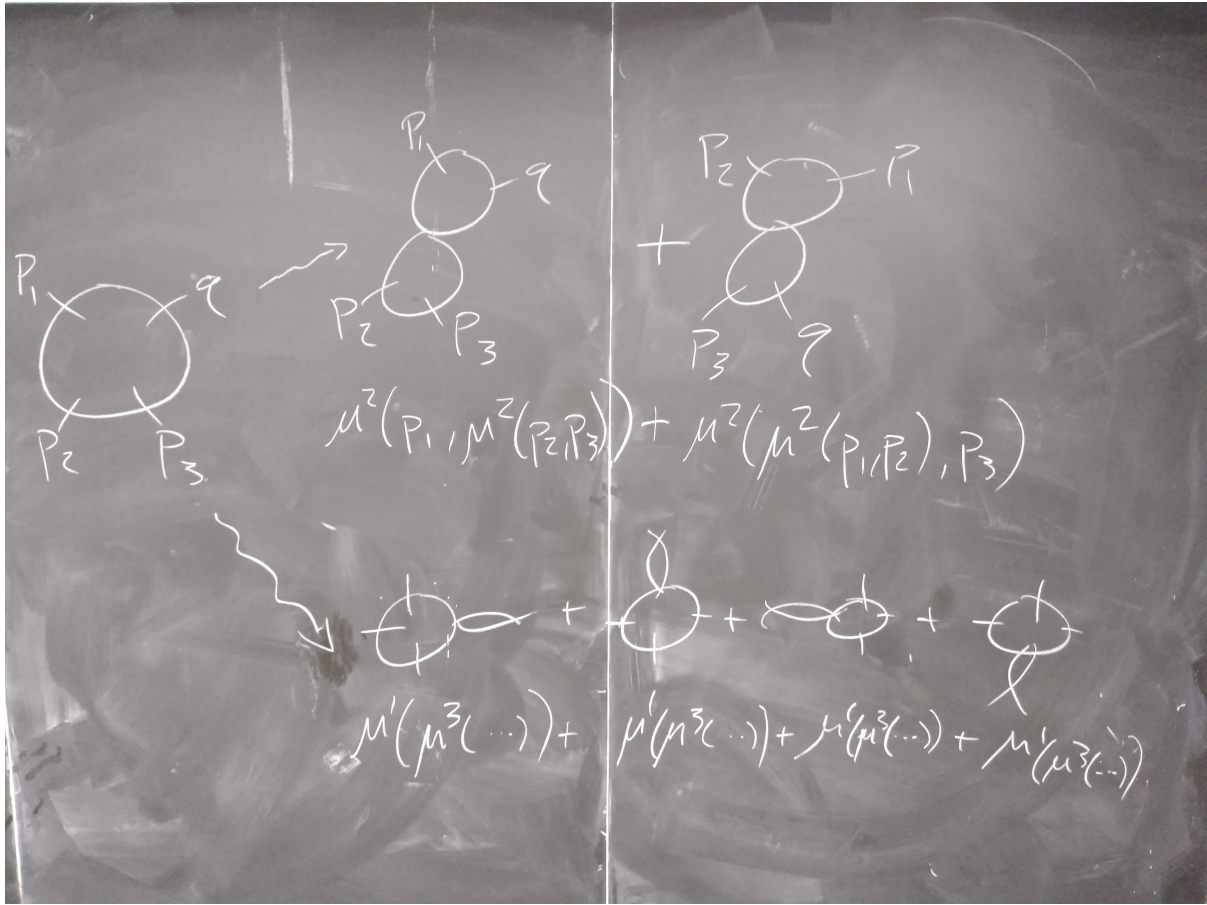 P₁ q
P₂ P₃
P₁ q
P₂ P₃
+
P₂ P₁
P₃ q
μ²(p₁, μ²(p₂,p₃)) + μ²(μ²(p₁,p₂), p₃)
+ + +
μ¹(μ³(...)) + μ¹(μ³(...)) + μ¹(μ³(...)) + μ¹(μ³(...))